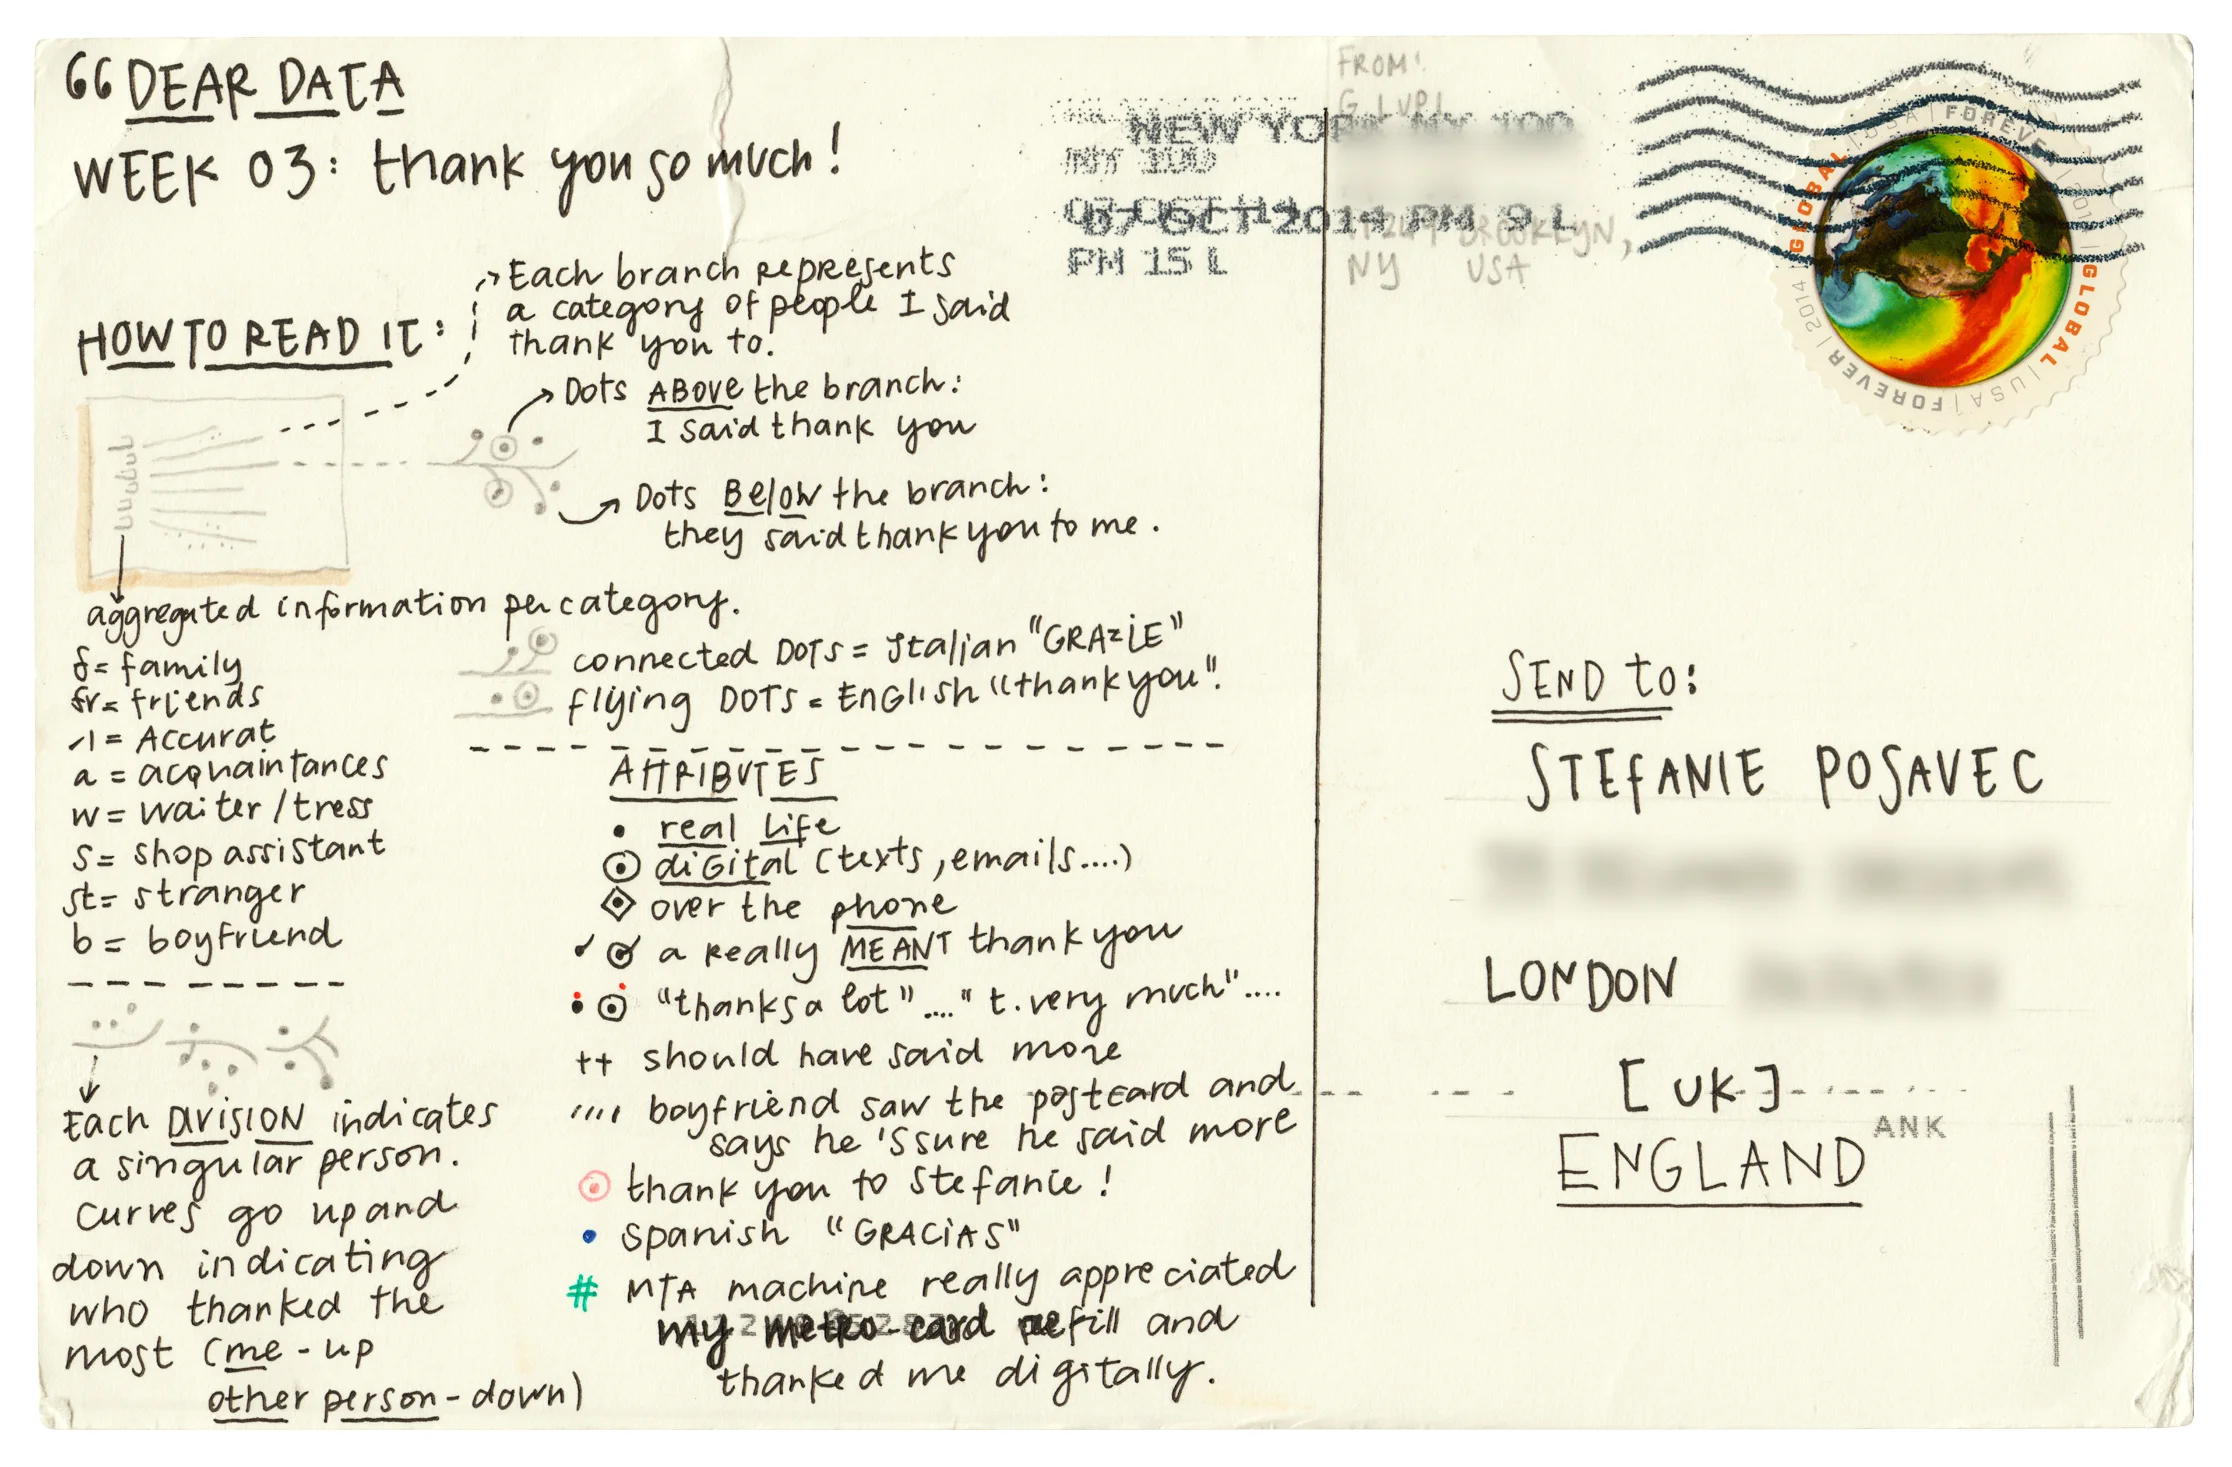 GG DEAR DATA
WEEK 03: thank you so much!
HOW TO READ IT:
Each branch represents
a category of people I said
thank you to.
Dots ABOVE the branch:
I said thank you
Dots BELOW the branch:
they said thank you to me.
aggregated information per category.
f= family
fr= friends
A= Accurat
a = acquaintances
w= waiter/tress
s= shop assistant
st= stranger
b = boyfriend
connected DOTS = Italian "GRAZIE"
flying DOTS = ENGlISH "thank you".
ATTRIBUTES
real life
diGital (texts, emails....)
over the phone
a really MEANT thank you
"thanks a lot" ...." t. very much"....
++ should have said more
,,,, boyfriend saw the postcard and
says he 's sure he said more
thank you to Stefanie!
Spanish "GRACiAS"
# MTA machine really appreciated
my metro-card refill and
thanked me digitally.
Each DIVISION indicates
a singular person.
curves go up and
down indicating
who thanked the
most (me - up
other person - down)
FROM:
G. LUPI
BROOKLYN,
NY USA
NEW YORK NY 100
NY 100
07 OCT 2014 PM 9 L
PM 15 L
GLOBAL | USA | FOREVER | 2014 | GLOBAL | USA | FOREVER | 2014
SEND to:
STEFANIE POSAVEC
LONDON
[UK]
ENGLAND
ANK